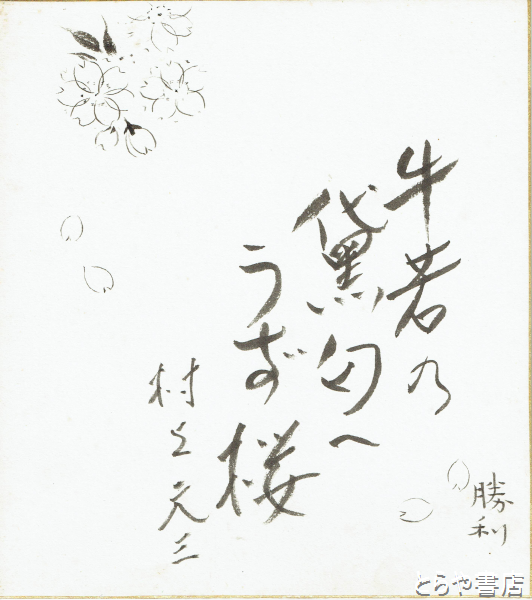 牛若の
黛匂へ
うず桜
村上元三
勝利
とらや書店